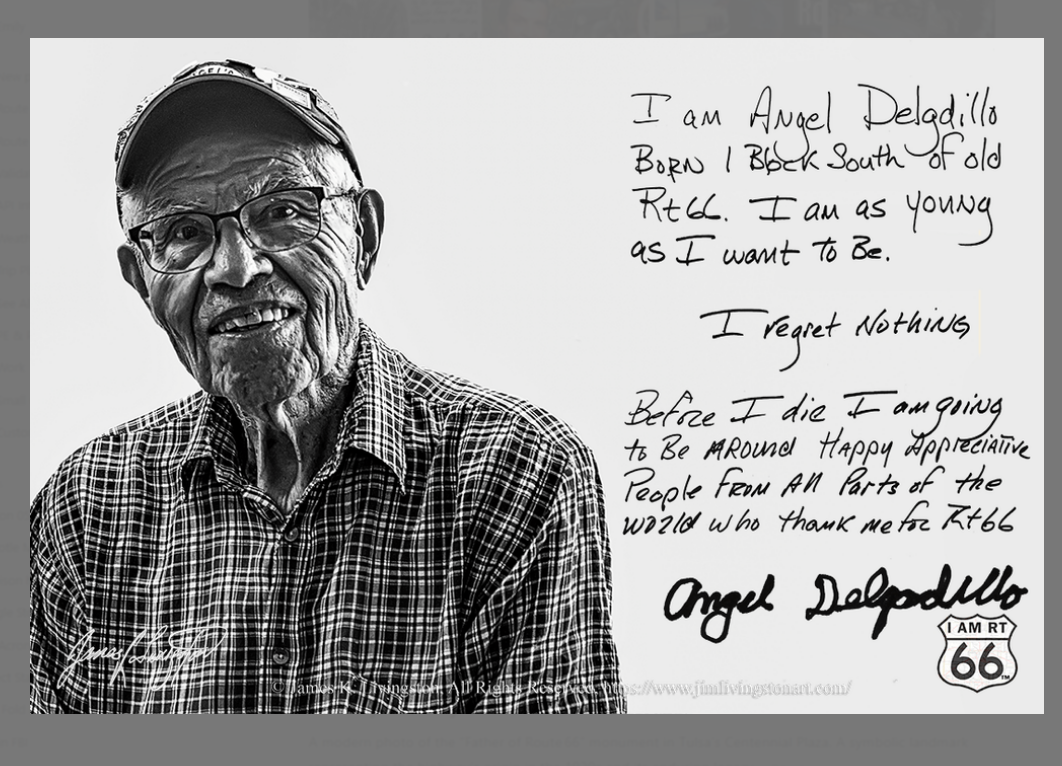 ANGEL'S
I am Angel Delgadillo
Born 1 Block South of old
Rt 66. I am as young
as I want to Be.
I regret Nothing
Before I die I am going
to Be Around Happy Appreciative
People From All Parts of the
world who thank me for Rt 66
Angel Delgadillo
I AM RT
66
TM
James K. Livingston
© James K. Livingston, All Rights Reserved, https://www.jimlivingstonart.com/